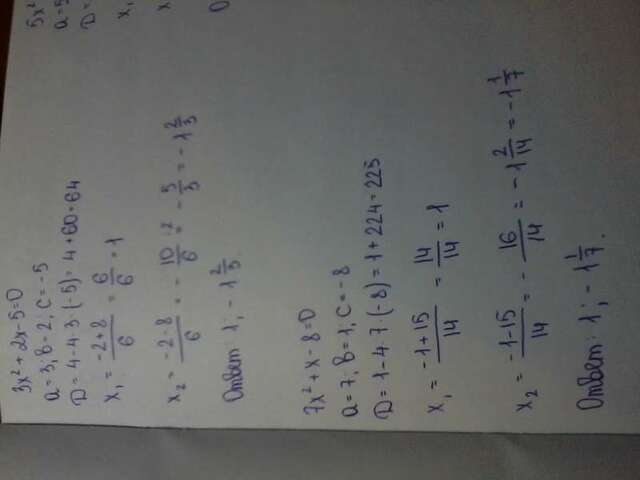 3x²+2x-5=0
a=3; b=2; c=-5
D=4-4·3·(-5)=4+60=64
x₁=(-2+8)/6=6/6=1
x₂=(-2-8)/6=-10/6=-5/3=-1 2/3
Ответ: 1; -1 2/3.
7x²+x-8=0
a=7; b=1; c=-8
D=1-4·7·(-8)=1+224=225
x₁=(-1+15)/14=14/14=1
x₂=(-1-15)/14=-16/14=-1 2/14=-1 1/7
Ответ: 1; -1 1/7.
5x²
a=5
D=
x₁
x
О